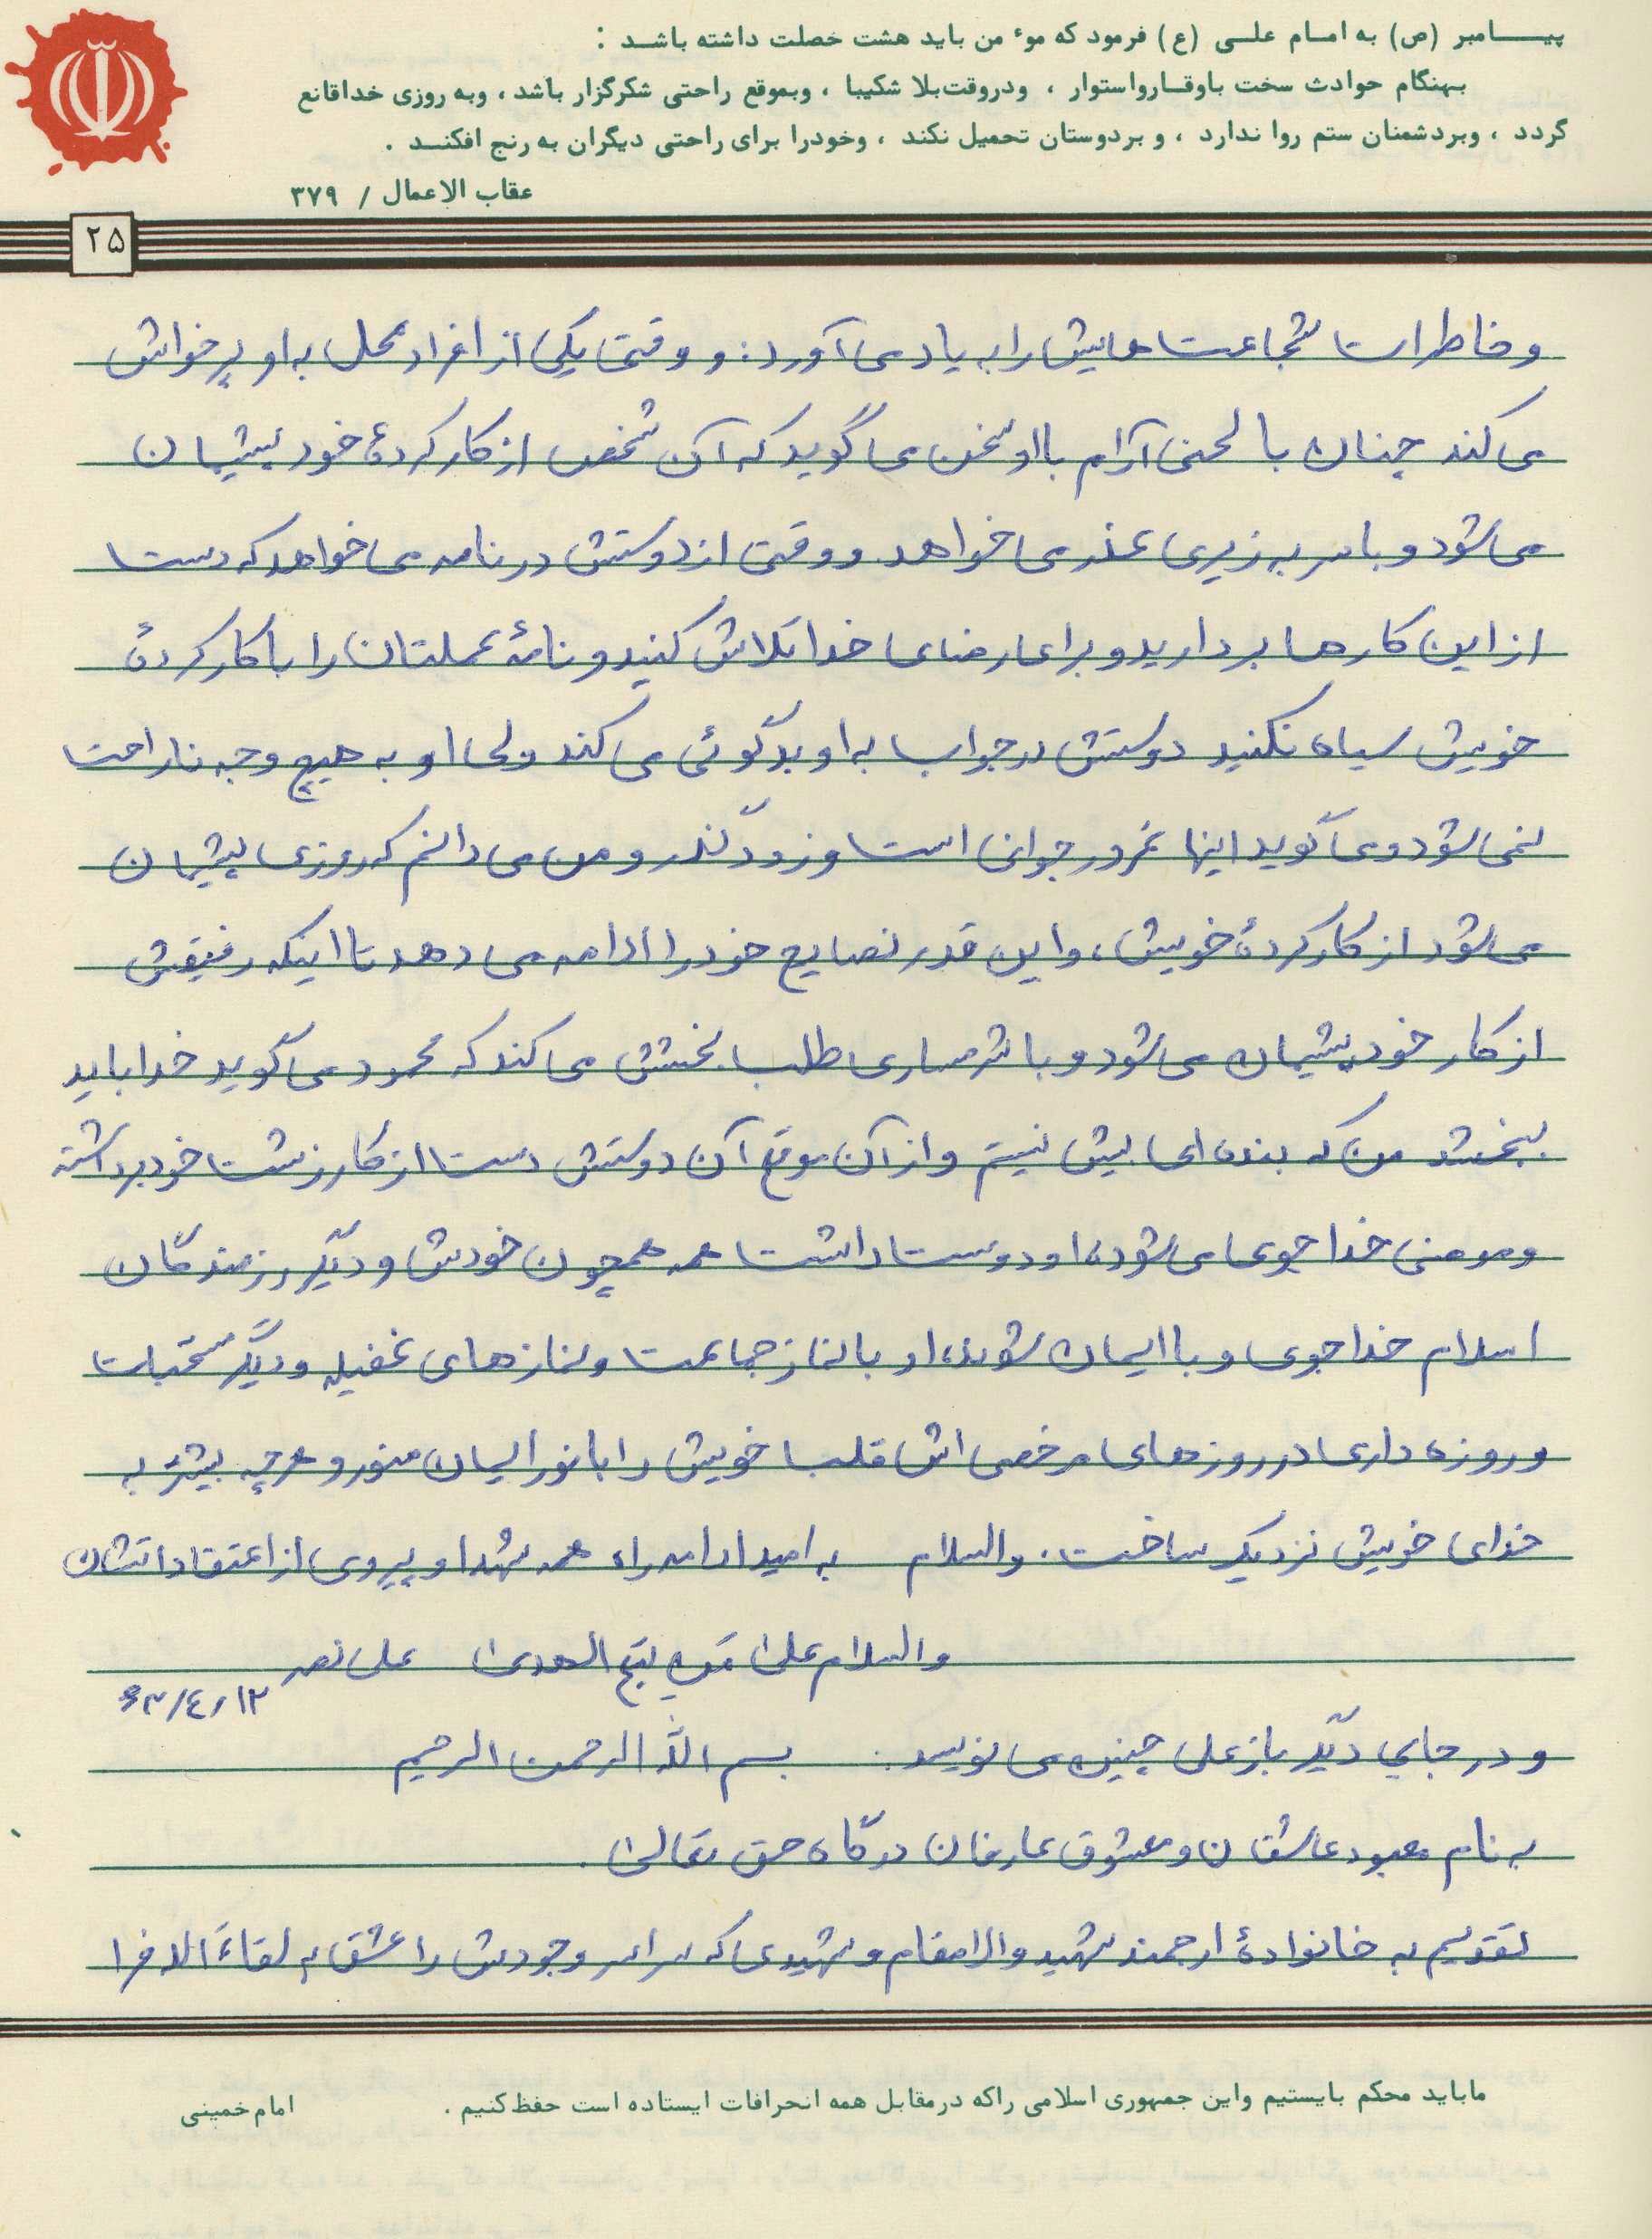 پیـــامبر (ص) به امـام علـی (ع) فرمود که موٴ من باید هشت خصلت داشته باشـد :
بهنگام حوادث سخت باوقـارواستوار ، ودروقت‌بلا شکیبا ، وبموقع راحتی شکرگزار باشد ، وبه روزی خداقانع
گردد ، وبردشمنان ستم روا ندارد ، و بردوستان تحمیل نکند ، وخودرا برای راحتی دیگران به رنج افکنـد .
عقاب الاعمال / ۳۷۹
۲۵
و خاطرات شجاعت هایش را به یاد می آورد: و وقتی یکی از افراد محل به او پرخواش
می کند چنان با لحنی آرام با او سخن می گوید که آن شخص از کار کردهٔ خود پشیمان
می شود و با سر به زیری عذر می خواهد و وقتی از دوستش در نامه می خواهد که دست
از این کارها بردارید و برای رضای خدا تلاش کنید و نامهٔ عملتان را با کار کردهٔ
خویش سیاه نکنید دوستش در جواب به او بدگوئی می کند ولی او به هیچ وجه ناراحت
نمی شود و می گوید اینها غرور جوانی است و زودگذر و من می دانم که روزی پشیمان
می شود از کار کردهٔ خویش، و این قدر نصایح خود را ادامه می دهد تا اینکه رفیقش
از کار خود پشیمان می شود و با شرمساری طلب بخشش می کند که محمود می گوید خدا باید
ببخشد من که بنده ای بیش نیستم و از آن موقع آن دوستش دست از کار زشت خود برداشته
و مومنی خداجوی می شود، او دوست داشت همه همچون خودش و دیگر رزمندگان
اسلام خداجوی و با ایمان شوند، او با نماز جماعت و نمازهای غفیله و دیگر مستحبات
و روزه داری در روزهای مرخصی اش قلب خویش را با نور ایمان منور و هرچه بیشتر به
خدای خویش نزدیک ساخت. والسلام به امید ادامه راه همه شهدا و پیروی از اعتقاداتشان
والسلام علی من یتبع الهدی علی نصر
۶۳/٤/۱۲
و در جایی دیگر باز علی چنین می نویسد: بسم الله الرحمن الرحیم
به نام معبود عاشقان و معشوق عارفان درگاه حق تعالی.
تقدیم به خانوادهٔ ارجمند شهید والامقام و شهیدی که سراسر وجودش را عشق به لقاءَ الله فرا
ماباید محکم بایستیم واین جمهوری اسلامی راکه درمقابل همه انحرافات ایستاده است حفظ‌کنیم . امام‌خمینی